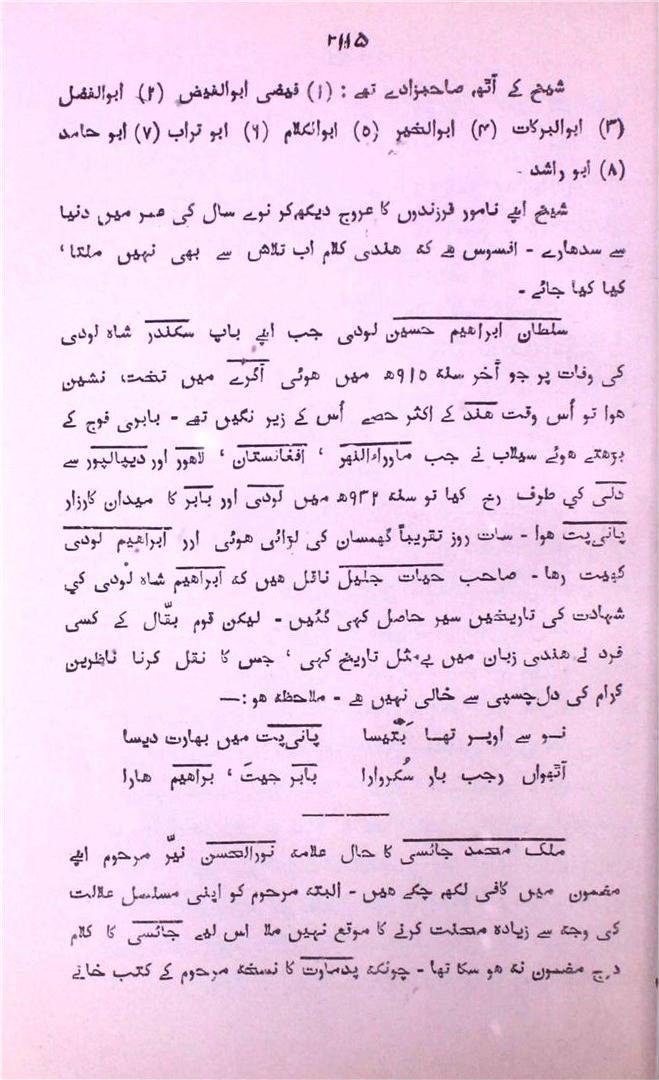 ۲۸۱۵
شیخ کے آٹھ صاحبزادے تھے : (۱) فیضی ابوالفیض (۲) ابوالفضل
(۳) ابوالبرکات (۴) ابوالخیر (۵) ابوالکلام (۶) ابو تراب (۷) ابو حامد
(۸) ابو راشد -
شیخ اپنے نامور فرزندوں کا عروج دیکھ کر نوے سال کی عمر میں دنیا
سے سدھارے - افسوس ہے کہ ہندی کلام اب تلاش سے بھی نہیں ملتا ،
کیا کیا جائے -
سلطان ابراہیم حسین لودی جب اپنے باپ سکندر شاہ لودی
کی وفات پر جو آخر سنہ ۹۱۵ھ میں ہوئی آگرے میں تخت نشین
ہوا تو اُس وقت ہند کے اکثر حصے اُس کے زیر نگیں تھے - بابری فوج کے
بڑھتے ہوئے سیلاب نے جب ماوراءالنہر ، افغانستان ، لاہور اور دیپالپور سے
دلی کی طرف رخ کیا تو سنہ ۹۳۲ھ میں لودی اور بابر کا میدان کارزار
پانی پت ہوا - سات روز تقریباً گھمسان کی لڑائی ہوئی اور ابراہیم لودی
کھیت رہا - صاحب حیات جلیل ناقل ہیں کہ ابراہیم شاہ لودی کی
شہادت کی تاریخیں سیر حاصل کہی گئیں - لیکن قوم بقّال کے کسی
فرد نے ہندی زبان میں بےمثل تاریخ کہی ، جس کا نقل کرنا ناظرین
کرام کی دل چسپی سے خالی نہیں ہے - ملاحظہ ہو :—
نو سے اوپر تھا بتیسا پانی پت میں بھارت دیسا
آٹھواں رجب بار سُکروارا بابر جیتَ ، براہیم ہارا
ملک محمد جائسی کا حال علامہ نورالحسن نیّر مرحوم اپنے
مضمون میں کافی لکھ چکے ہیں - البتہ مرحوم کو اپنی مسلسل علالت
کی وجہ سے زیادہ محنت کرنے کا موقع نہیں ملا اس لیے جائسی کا کلام
درج مضمون نہ ہو سکا تھا - چونکہ پدماوت کا نسخہ مرحوم کے کتب خانے